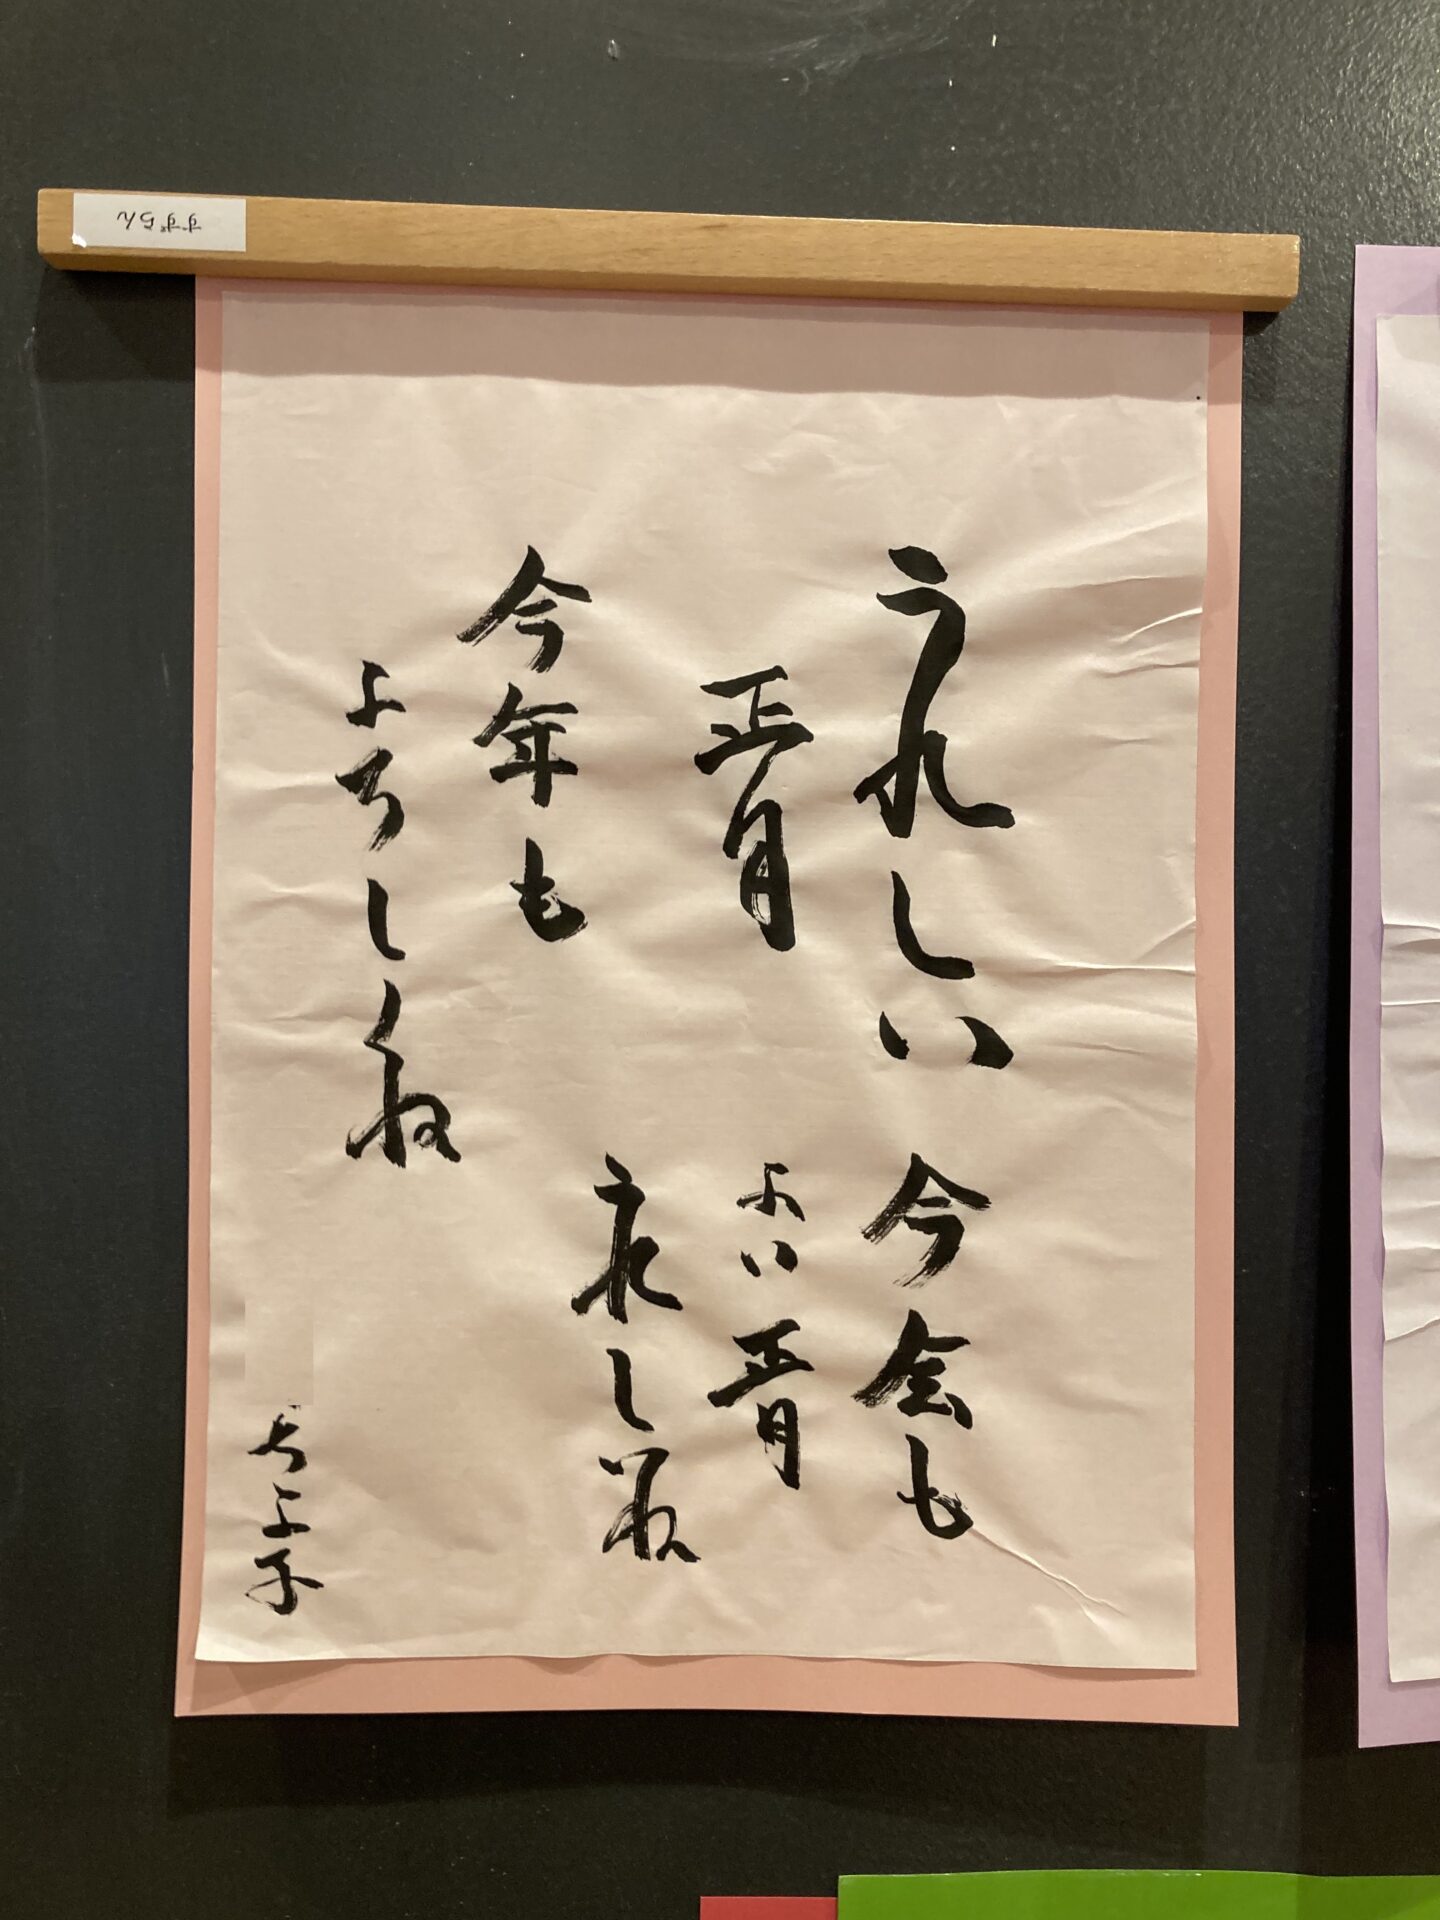 うれしい
正月
今会も
よい正月
うれしいね
今年も
よろしくね
ちよ子
すずらん